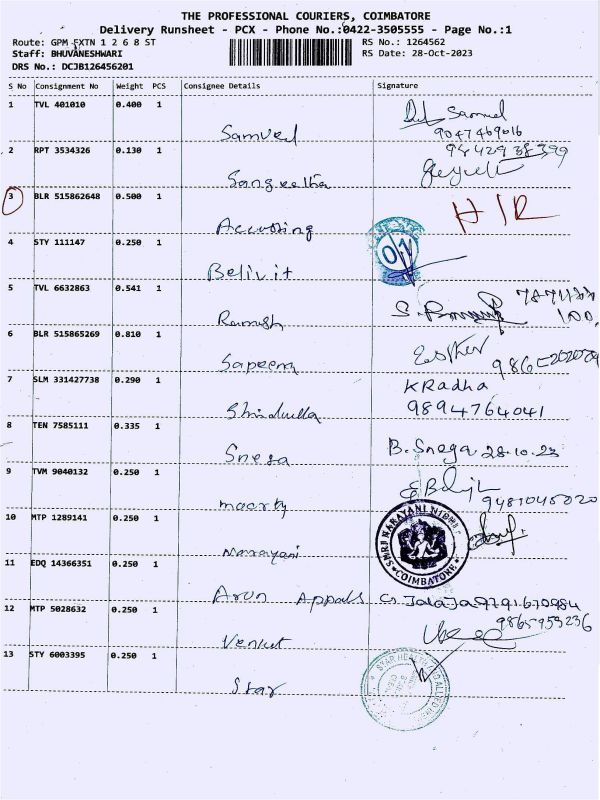 THE PROFESSIONAL COURIERS, COIMBATORE
Delivery Runsheet - PCX - Phone No.:0422-3505555 - Page No.:1
Route: GPM EXTN 1 2 6 8 ST RS No.: 1264562
Staff: BHUVANESHWARI RS Date: 28-Oct-2023
DRS No.: DCJB126456201
S No Consignment No Weight PCS Consignee Details Signature
1 TVL 401010 0.400 1 Samuel
Samvel
9047469016
2 RPT 3534326 0.130 1 94429 38399
Sangeetha
3 BLR 515862648 0.500 1 H/R
Accusing
4 STY 111147 0.250 1 01
Belivit
5 TVL 6632863 0.541 1
Ramesh
6 BLR 515865269 0.810 1 Esther
Sapeem
7 SLM 331427738 0.290 1 K Radha
9894764041
8 TEN 7585111 0.335 1 B. Snega 28.10.23
Snega
9 TVM 9040132 0.250 1
9481045020
Moorty
10 MTP 1289141 0.250 1 SHRI NARAYANI NIDHI COIMBATORE
Narayani
11 EDQ 14366351 0.250 1
Arun Appals G. Jalaja 9791670984
12 MTP 5028632 0.250 1 9865953236
Venkut
13 STY 6003395 0.250 1 STAR HEALTH AND ALLIED
Star